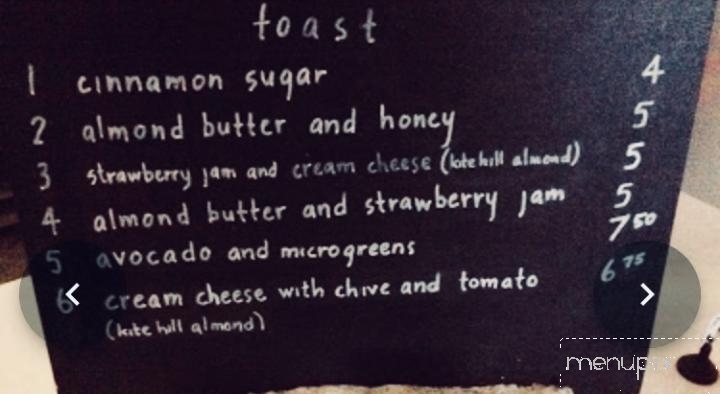 toast
1 cinnamon sugar 4
2 almond butter and honey 5
3 strawberry jam and cream cheese (kite hill almond) 5
4 almond butter and strawberry jam 5
5 avocado and microgreens 7 50
6 cream cheese with chive and tomato 6 75
(kite hill almond)